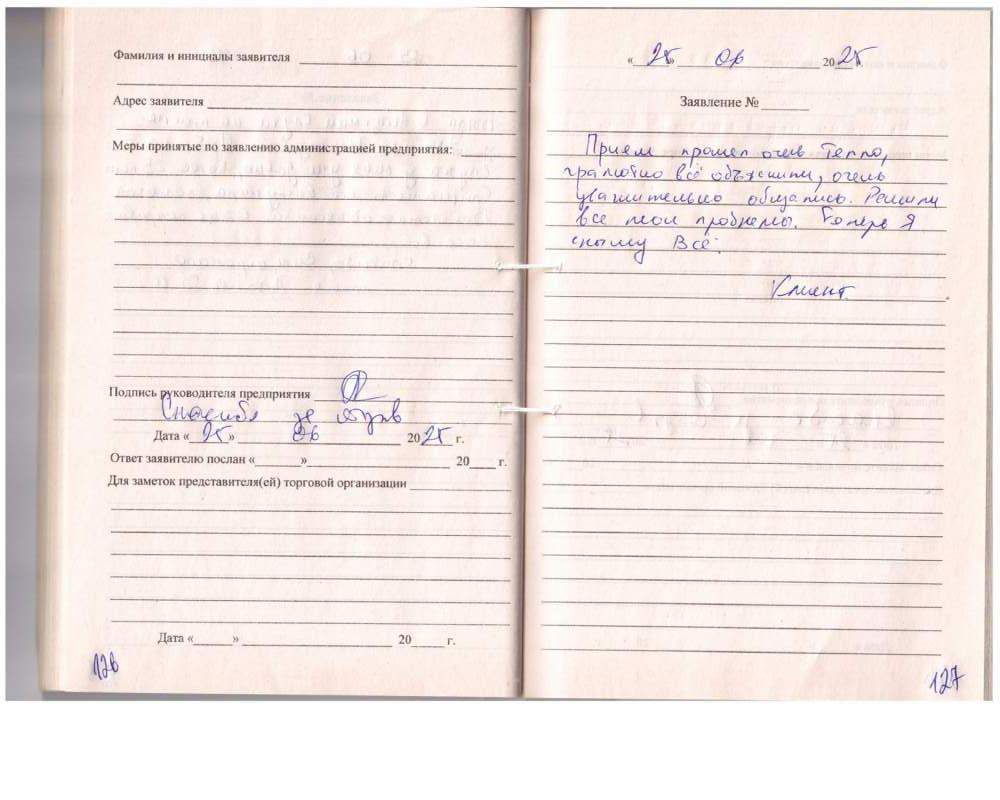 Фамилия и инициалы заявителя
Адрес заявителя
Меры принятые по заявлению администрацией предприятия:
Подпись руководителя предприятия
Спасибо за отзыв
Дата « 25 » 06 20 25 г.
Ответ заявителю послан « » 20 г.
Для заметок представителя(ей) торговой организации
Дата « » 20 г.
126
« 25 » 06 20 25 г.
Заявление №
Прием прошел очень тепло,
грамотно всё объяснили, очень
уважительно общались. Решили
все мои проблемы. Теперь я
Всё.
Клиент
127